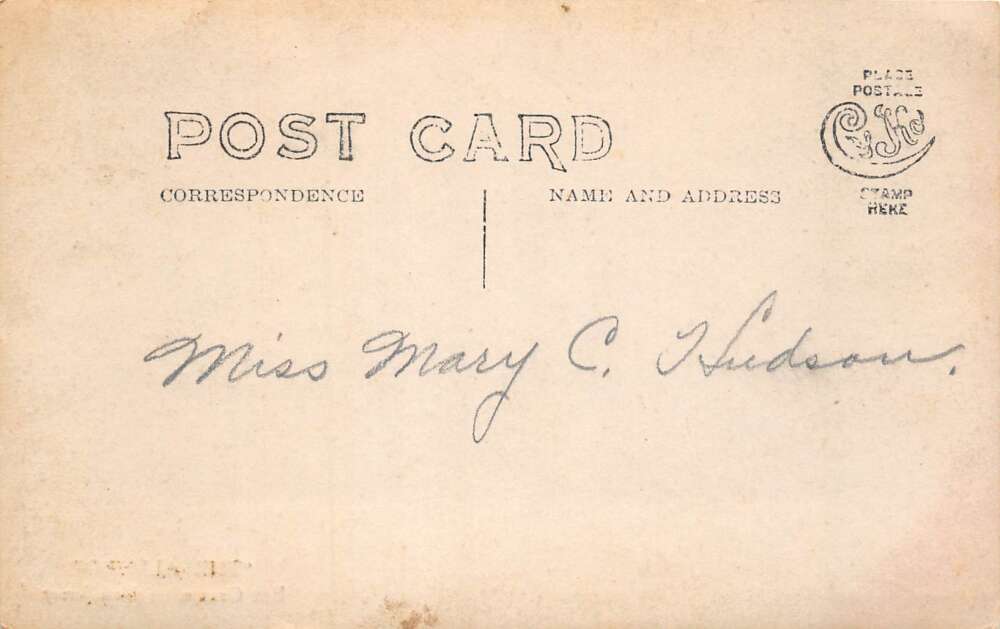 POST CARD
CORRESPONDENCE
NAME AND ADDRESS
PLACE
POSTAGE
STAMP
HERE
Miss Mary C. Hudson.